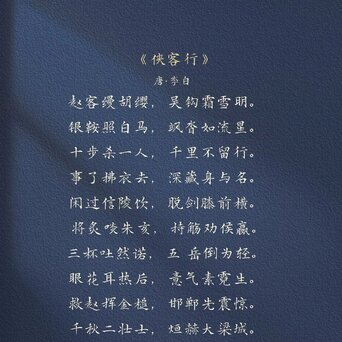 《侠客行》
唐·李白
赵客缦胡缨，吴钩霜雪明。
银鞍照白马，飒沓如流星。
十步杀一人，千里不留行。
事了拂衣去，深藏身与名。
闲过信陵饮，脱剑膝前横。
将炙啖朱亥，持觞劝侯嬴。
三杯吐然诺，五岳倒为轻。
眼花耳热后，意气素霓生。
救赵挥金槌，邯郸先震惊。
千秋二壮士，烜赫大梁城。